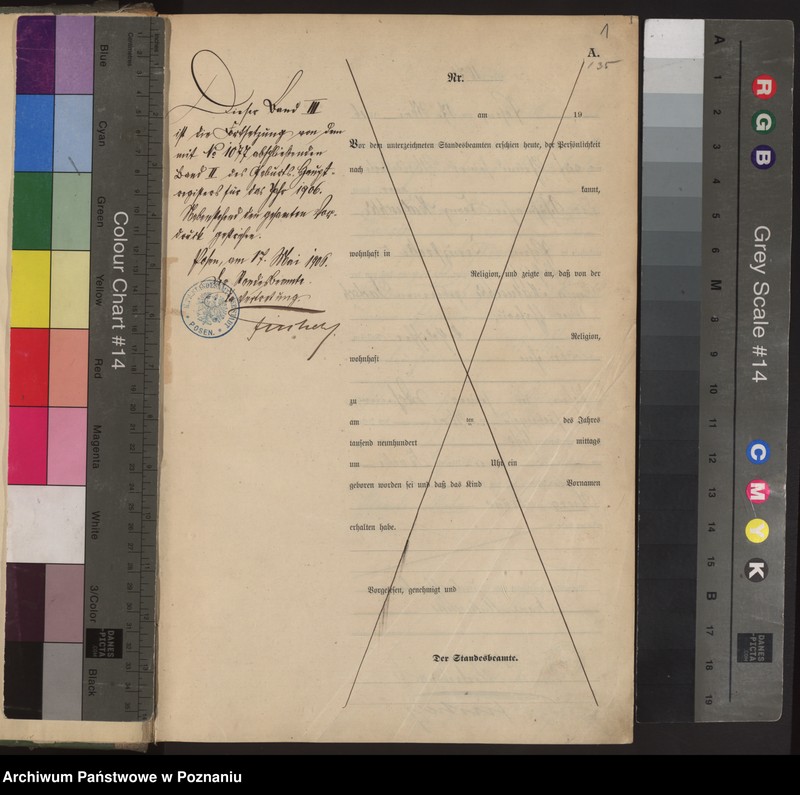 1
A.
135
Nr.
Dieser Band III
ist die Fortsetzung von dem
mit No 1077 abschließenden
Band II des Geburts-Haupt-
registers für das Jahr 1906.
Nebenstehend den gesamten Vor-
druck gestrichen.
Posen, am 17. Mai 1906.
Der Standesbeamte.
In Vertretung.
POSEN.
am 19
Vor dem unterzeichneten Standesbeamten erschien heute, der Persönlichkeit
nach
kannt,
wohnhaft in
Religion, und zeigte an, daß von der
Religion,
wohnhaft
zu
am des Jahres
tausend neunhundert mittags
um Uhr ein
geboren worden sei und daß das Kind Vornamen
erhalten habe.
Vorgelesen, genehmigt und
Der Standesbeamte.
Colour Chart #14
Blue
Cyan
Green
Yellow
Red
Magenta
White
3/Color
Black
Centimetres
Inches
DANES
PICTA
.COM
Grey Scale #14
R
G
B
C
M
Y
K
A
1
2
3
4
5
6
M
8
9
10
11
12
13
14
15
B
17
18
19
DANES
PICTA
.COM
Archiwum Państwowe w Poznaniu